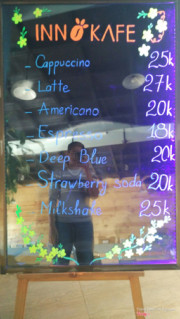 INNOKAFE
- Cappuccino 25k
- Latte 27k
- Americano 20k
- Espresso 18k
- Deep Blue 20k
- Strawberry soda 20k
- Milkshake 25k